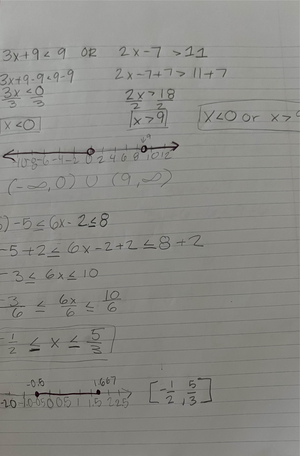 3x+9<9 OR 2x-7 >11
3x+9-9<9-9 2x-7+7>11+7
3x<0 2x>18
3 3 2 2
x<0 x>9 x<0 or x>9
-10-8-6-4-2 0 2 4 6 8 9 10 12
(-∞,0) ∪ (9,∞)
) -5≤6x-2≤8
-5+2≤6x-2+2≤8+2
-3≤6x≤10
-3/6 ≤ 6x/6 ≤ 10/6
-1/2 ≤ x ≤ 5/3
-0.5 1.667
[-1/2, 5/3]